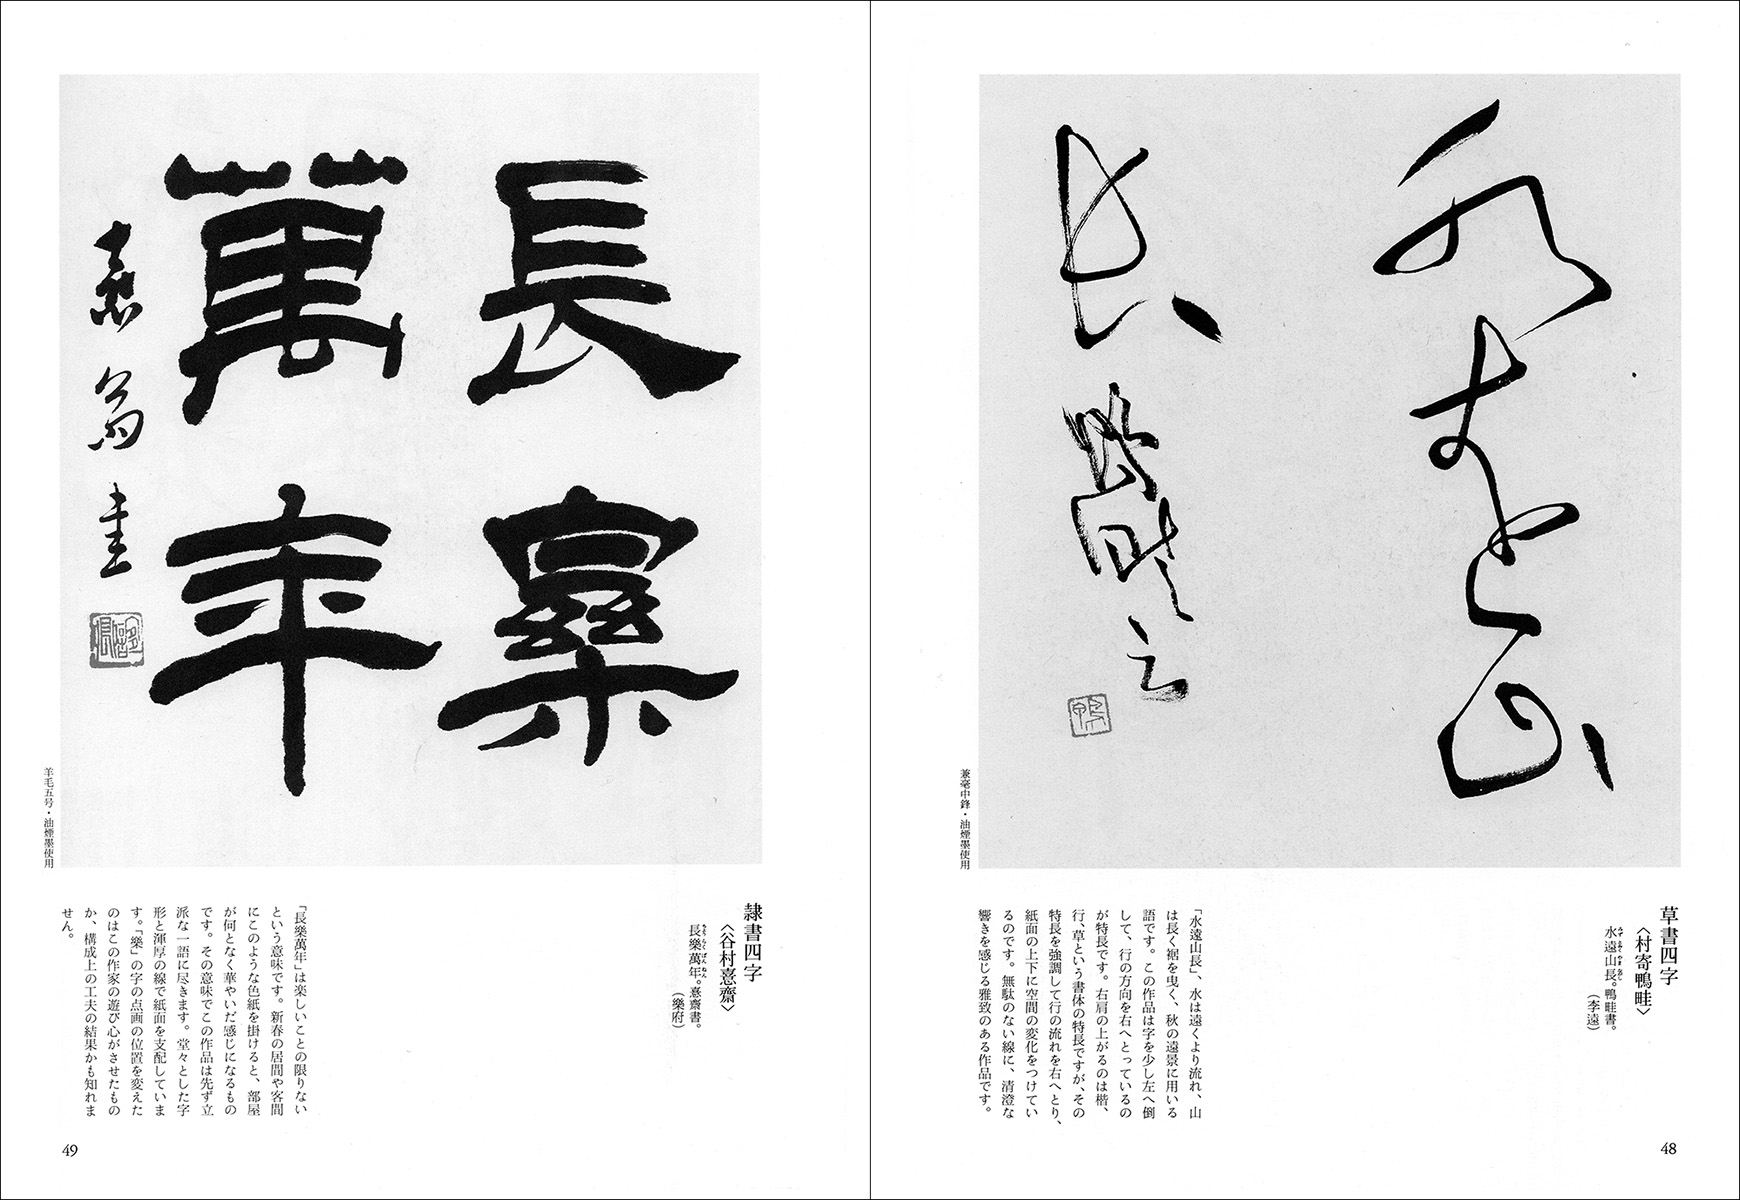 水遠山
長
鴨畦之
兼毫中鋒・油煙墨使用
草書四字
〈村寄鴨畦〉
水遠山長。鴨畦書。
（李遠）
「水遠山長」、水は遠くより流れ、山
は長く裾を曳く、秋の遠景に用いる
語です。この作品は字を少し左へ倒
して、行の方向を右へとっているの
が特長です。右肩の上がるのは楷、
行、草という書体の特長ですが、その
特長を強調して行の流れを右へとり、
紙面の上下に空間の変化をつけてい
るのです。無駄のない線に、清澄な
響きを感じる雅致のある作品です。
48
長樂
萬年
羊毛五号・油煙墨使用
隷書四字
〈谷村憙齋〉
長樂萬年。憙齋書。
（樂府）
「長樂萬年」は楽しいことの限りない
という意味です。新春の居間や客間
にこのような色紙を掛けると、部屋
が何となく華やいだ感じになるもの
です。その意味でこの作品は先ず立
派な一語に尽きます。堂々とした字
形と渾厚の線で紙面を支配していま
す。「樂」の字の点画の位置を変えた
のはこの作家の遊び心がさせたもの
か、構成上の工夫の結果かも知れま
せん。
49